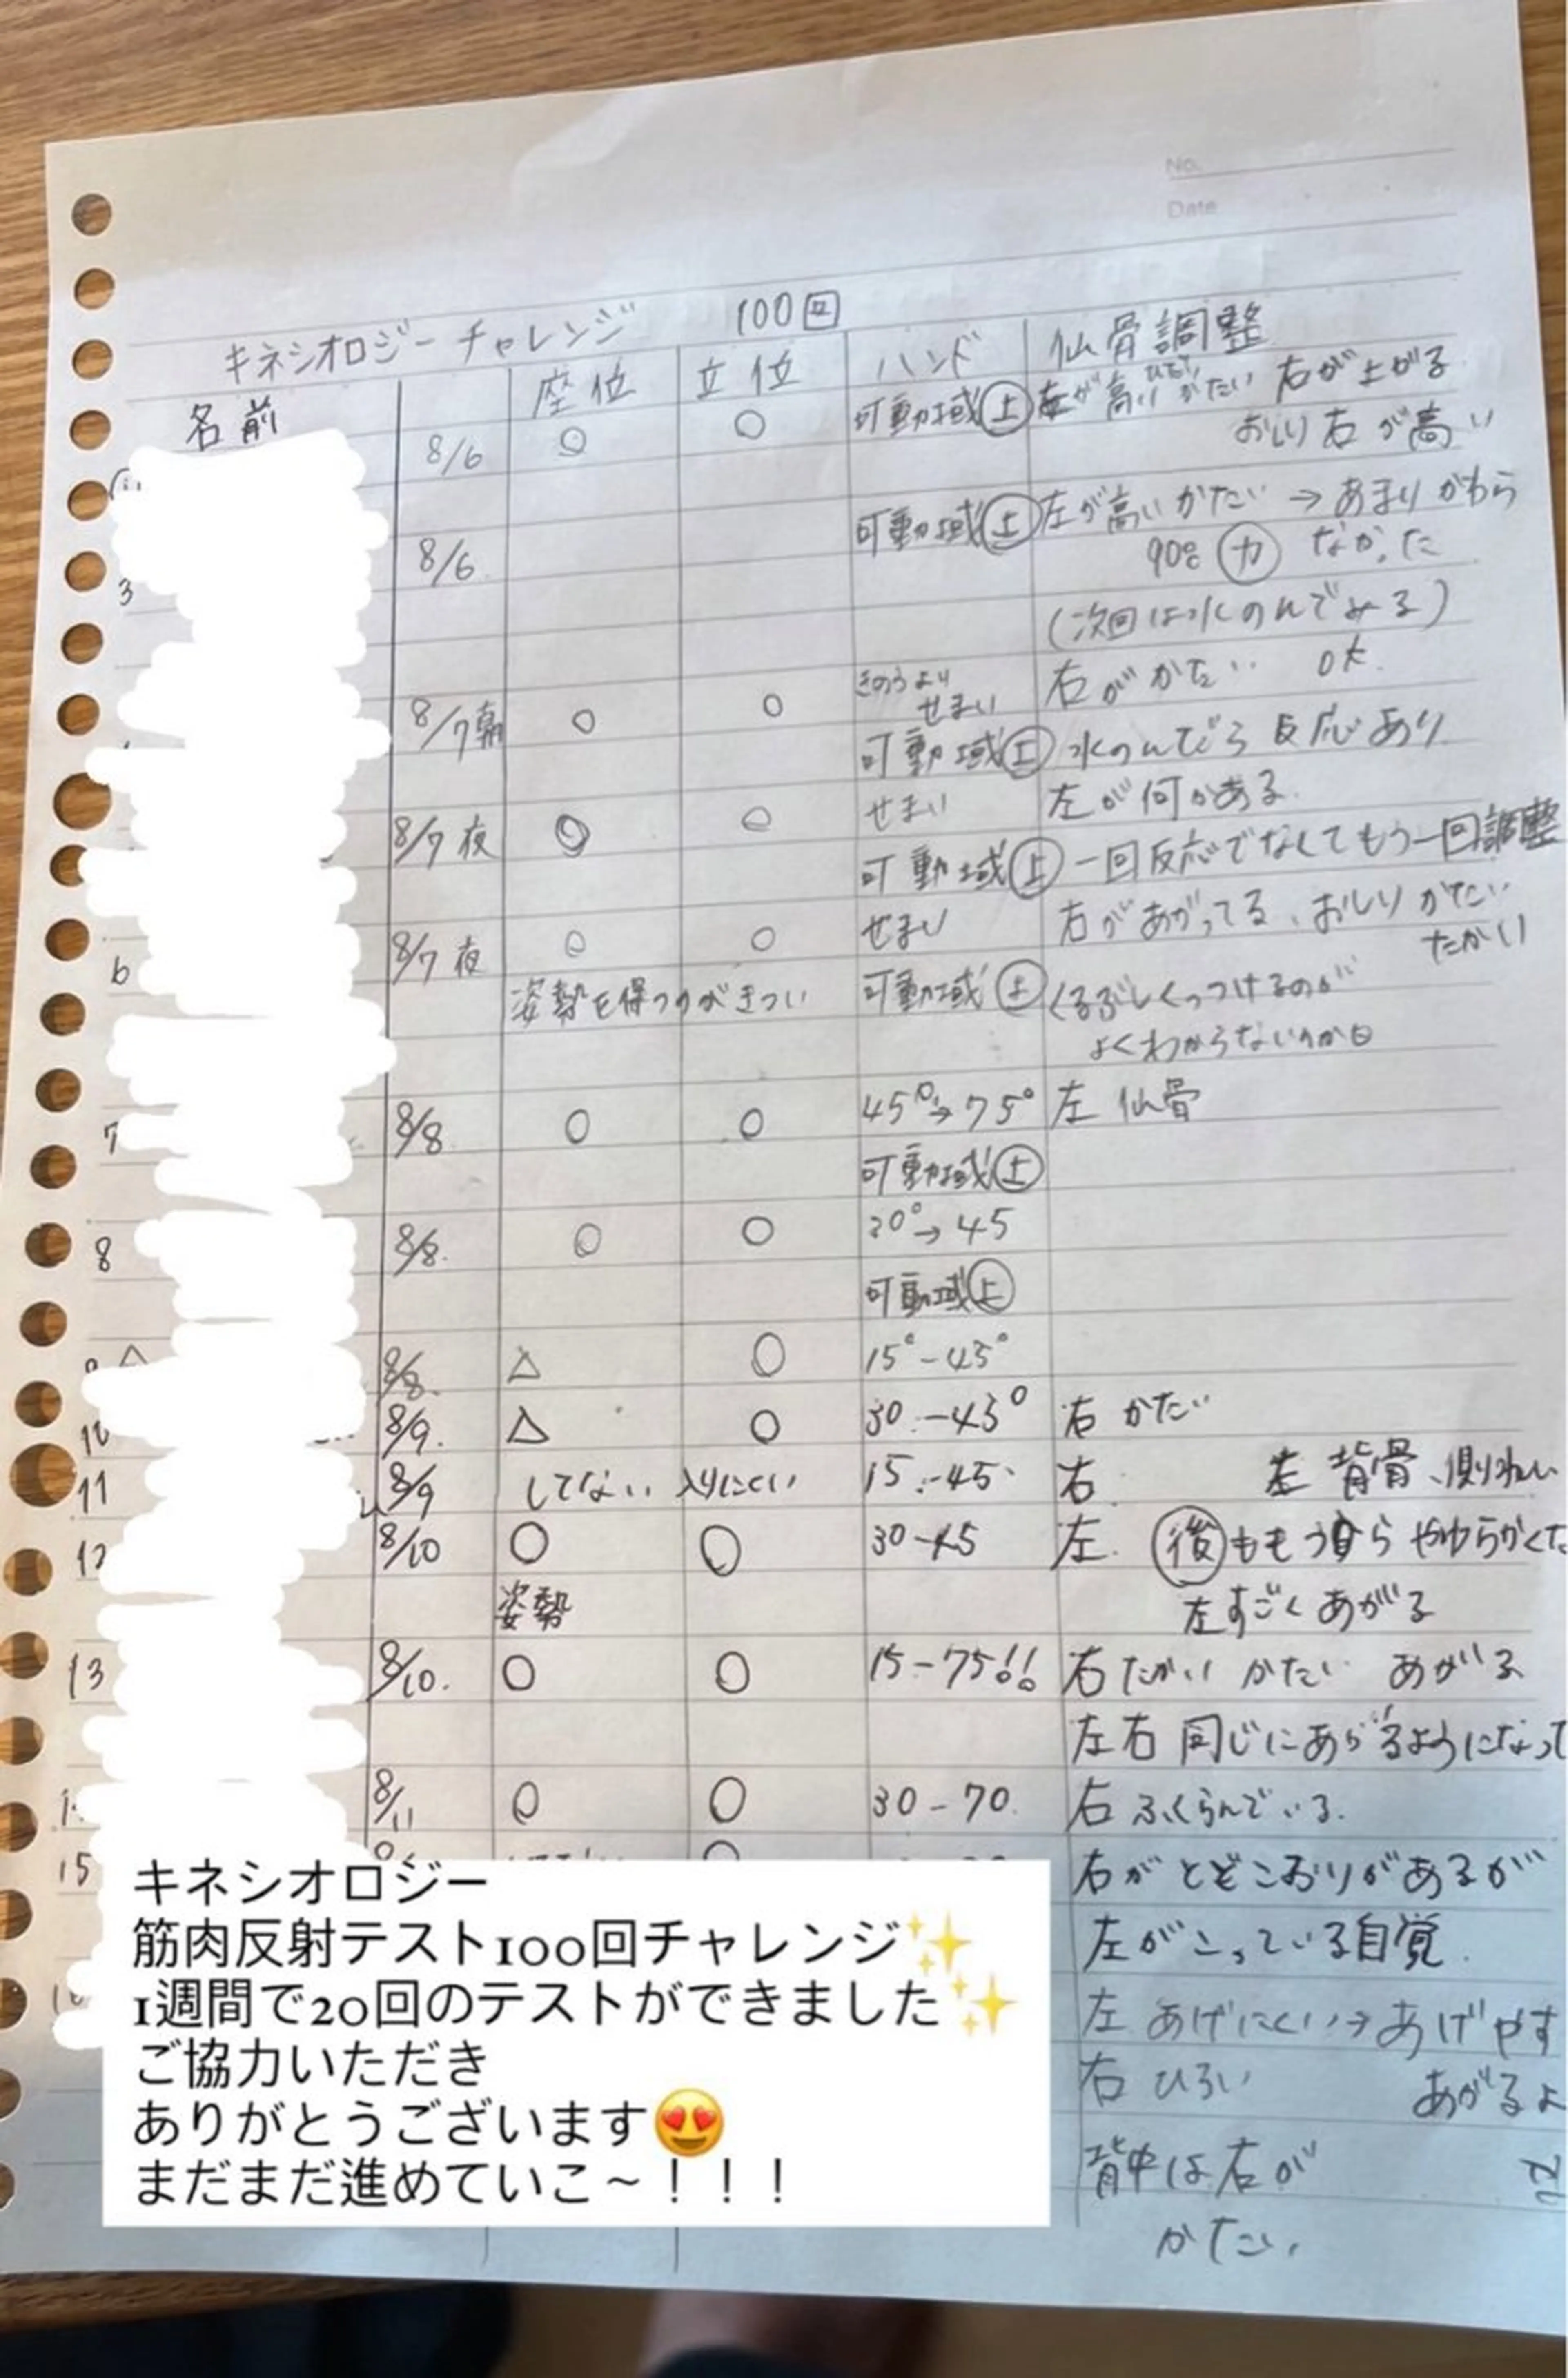 No.
Date
キネシオロジーチャレンジ 100回
名前 座位 立位 ハンド 仙骨調整
8/6 ○ ○ 可動域上 左が高い かたい 右が上がる
おしり右が高い
8/6 可動域上 左が高いかたい → あまりかわら
90% 力 なかった
3
(次回は水のんでみる)
8/7朝 ○ ○ きのうより せまい 右がかたい OK
可動域上 水のんだら反応あり
8/7夜 ◎ ○ せまい 左が何かある
可動域上 一回反応でなくてもう一回調整
6 8/7夜 ○ ○ せまい 右があがってる、おしりかたい
たかい
姿勢を得つのがきつい 可動域上 くるぶしくっつけるのが
よくわからないのか
7 8/8 ○ ○ 45°→75° 左 仙骨
可動域上
8 8/8. ○ ○ 30°→45
可動域上
8/8. △ ○ 15°-45°
10 8/9. △ ○ 30-45° 右かたい
11 8/9 してない 入りにくい 15-45 右 左 背骨、側
12 8/10 ○ ○ 30-45 左. 後ももうら やわらかくた
姿勢 左すごくあがる
13 8/10. ○ ○ 15-75!! 右たかい かたい あがる
左右同じにあがるようになって
8/11 ○ ○ 30-70. 右ふくらんでいる.
15 右がとどこおりがあるが
左がこっている自覚.
左あげにくい→あげやす
右ひろい あがるよ
背中は右が
かたい.
キネシオロジー
筋肉反射テスト100回チャレンジ✨
1週間で20回のテストができました✨
ご協力いただき
ありがとうございます😍
まだまだ進めていこ〜！！！